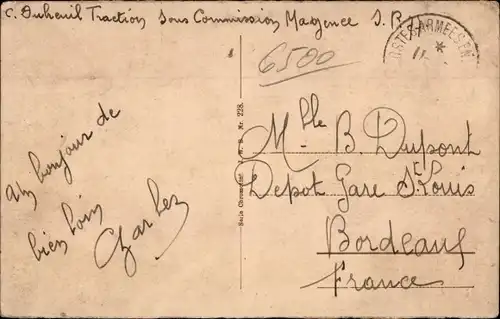 C. Duheuil Traction Sous Commission Mayence S.B.
POSTES ARMEES EN
*
11
6500
un bonjour de
bien loin
Charles
Mlle B. Dupont
Depot Gare St Louis
Bordeaux
France
Serie Chromolux Nr. 228.